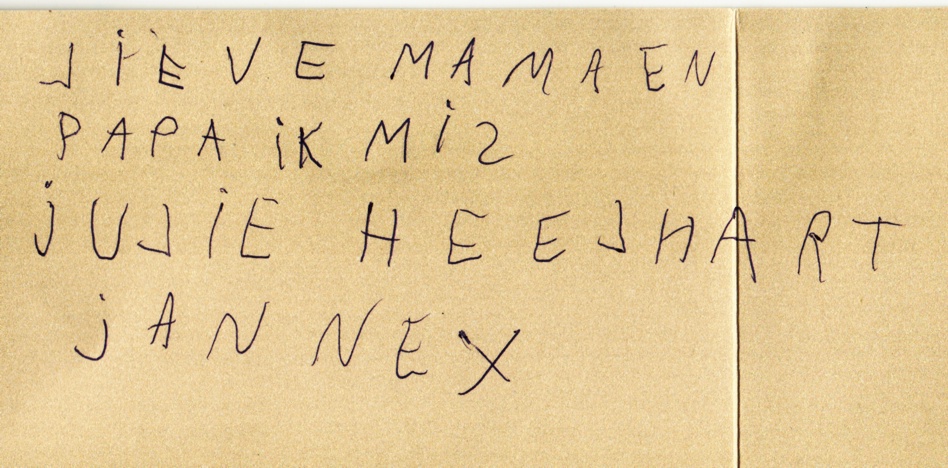 LiEVE MAMA EN
PAPA iK MiS
jULiE HEEL HART
jANNE X